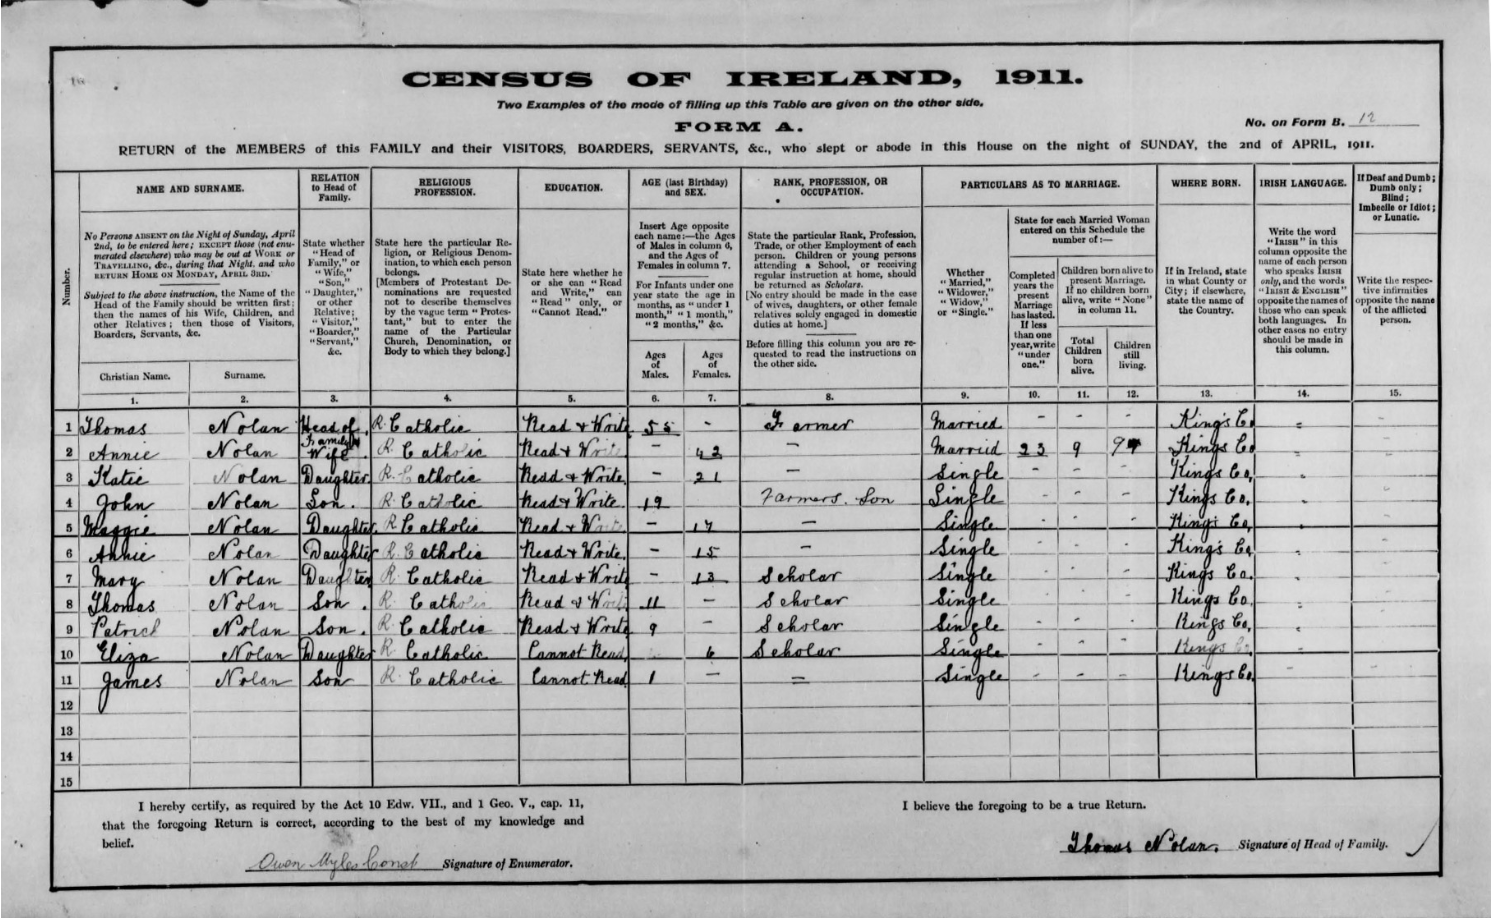 CENSUS OF IRELAND, 1911.
Two Examples of the mode of filling up this Table are given on the other side.
FORM A.
No. on Form B. 12
RETURN of the MEMBERS of this FAMILY and their VISITORS, BOARDERS, SERVANTS, &c., who slept or abode in this House on the night of SUNDAY, the 2nd of APRIL, 1911.
Number.
NAME AND SURNAME.
No Persons ABSENT on the Night of Sunday, April
2nd, to be entered here; EXCEPT those (not enu-
merated elsewhere) who may be out at WORK or
TRAVELLING, &c., during that Night, and who
RETURN HOME ON MONDAY, APRIL 3RD.
Subject to the above instruction, the Name of the
Head of the Family should be written first;
then the names of his Wife, Children, and
other Relatives; then those of Visitors,
Boarders, Servants, &c.
Christian Name.
Surname.
1.
2.
RELATION
to Head of
Family.
State whether
"Head of
Family," or
"Wife,"
"Son,"
"Daughter,"
or other
Relative;
"Visitor,"
"Boarder,"
"Servant,"
&c.
3.
RELIGIOUS
PROFESSION.
State here the particular Re-
ligion, or Religious Denom-
ination, to which each person
belongs.
[Members of Protestant De-
nominations are requested
not to describe themselves
by the vague term "Protes-
tant," but to enter the
name of the Particular
Church, Denomination, or
Body to which they belong.]
4.
EDUCATION.
State here whether he
or she can "Read
and Write," can
"Read" only, or
"Cannot Read."
5.
AGE (last Birthday)
and SEX.
Insert Age opposite
each name:—the Ages
of Males in column 6,
and the Ages of
Females in column 7.
For Infants under one
year state the age in
months, as "under 1
month," "1 month,"
"2 months," &c.
Ages
of
Males.
Ages
of
Females.
6.
7.
RANK, PROFESSION, OR
OCCUPATION.
State the particular Rank, Profession,
Trade, or other Employment of each
person. Children or young persons
attending a School, or receiving
regular instruction at home, should
be returned as Scholars.
[No entry should be made in the case
of wives, daughters, or other female
relatives solely engaged in domestic
duties at home.]
Before filling this column you are re-
quested to read the instructions on
the other side.
8.
PARTICULARS AS TO MARRIAGE.
Whether
"Married,"
"Widower,"
"Widow,"
or "Single."
9.
State for each Married Woman
entered on this Schedule the
number of:—
Completed
years the
present
Marriage
has lasted.
If less
than one
year, write
"under
one."
Children born alive to
present Marriage.
If no children born
alive, write "None"
in column 11.
Total
Children
born
alive.
Children
still
living.
10.
11.
12.
WHERE BORN.
If in Ireland, state
in what County or
City; if elsewhere,
state the name of
the Country.
13.
IRISH LANGUAGE.
Write the word
"IRISH" in this
column opposite the
name of each person
who speaks IRISH
only, and the words
"IRISH & ENGLISH"
opposite the names of
those who can speak
both languages. In
other cases no entry
should be made in
this column.
14.
If Deaf and Dumb;
Dumb only;
Blind;
Imbecile or Idiot;
or Lunatic.
Write the respec-
tive infirmities
opposite the name
of the afflicted
person.
15.
1 Thomas Nolan Head of Family R. Catholic Read & Write 55 - Farmer Married - - - Kings Co.
2 Annie Nolan Wife R. Catholic Read & Write - 42 - Married 23 9 9 Kings Co
3 Katie Nolan Daughter R. Catholic Read & Write - 21 - Single - - - Kings Co,
4 John Nolan Son. R. Catholic Read & Write 19 Farmers. Son Single - - - Kings Co,
5 Maggie Nolan Daughter R Catholic Read & Write - 17 - Single - - - Kings Co,
6 Annie Nolan Daughter R. Catholic Read & Write. - 15 - Single - - - Kings Co,
7 Mary Nolan Daughter R Catholic Read & Write - 13 Scholar Single - - - Kings Co.
8 Thomas Nolan Son. R. Catholic Read & Write 11 - Scholar Single - - - Kings Co,
9 Patrick Nolan Son. R Catholic Read & Write 9 - Scholar Single - - - Kings Co,
10 Eliza Nolan Daughter R Catholic Cannot Read, 6 Scholar Single - - - Kings Co,
11 James Nolan Son R. Catholic Cannot Read 1 - = Single - - - Kings Co.
12
13
14
15
I hereby certify, as required by the Act 10 Edw. VII., and 1 Geo. V., cap. 11,
that the foregoing Return is correct, according to the best of my knowledge and
belief.
Owen Myles Const Signature of Enumerator.
I believe the foregoing to be a true Return.
Thomas Nolan. Signature of Head of Family.